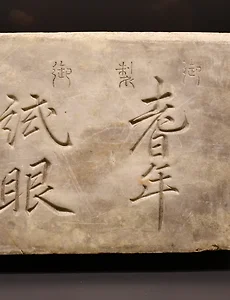 御製御
耆年
試眼